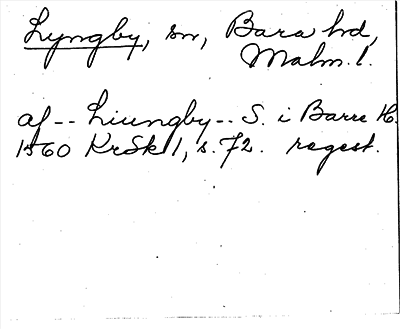 Lyngby, sn, Bara hd,
Malm. l.
af -- Liungby -- S. i Barre H.
1560 KrSk 1, s. 72. regest.